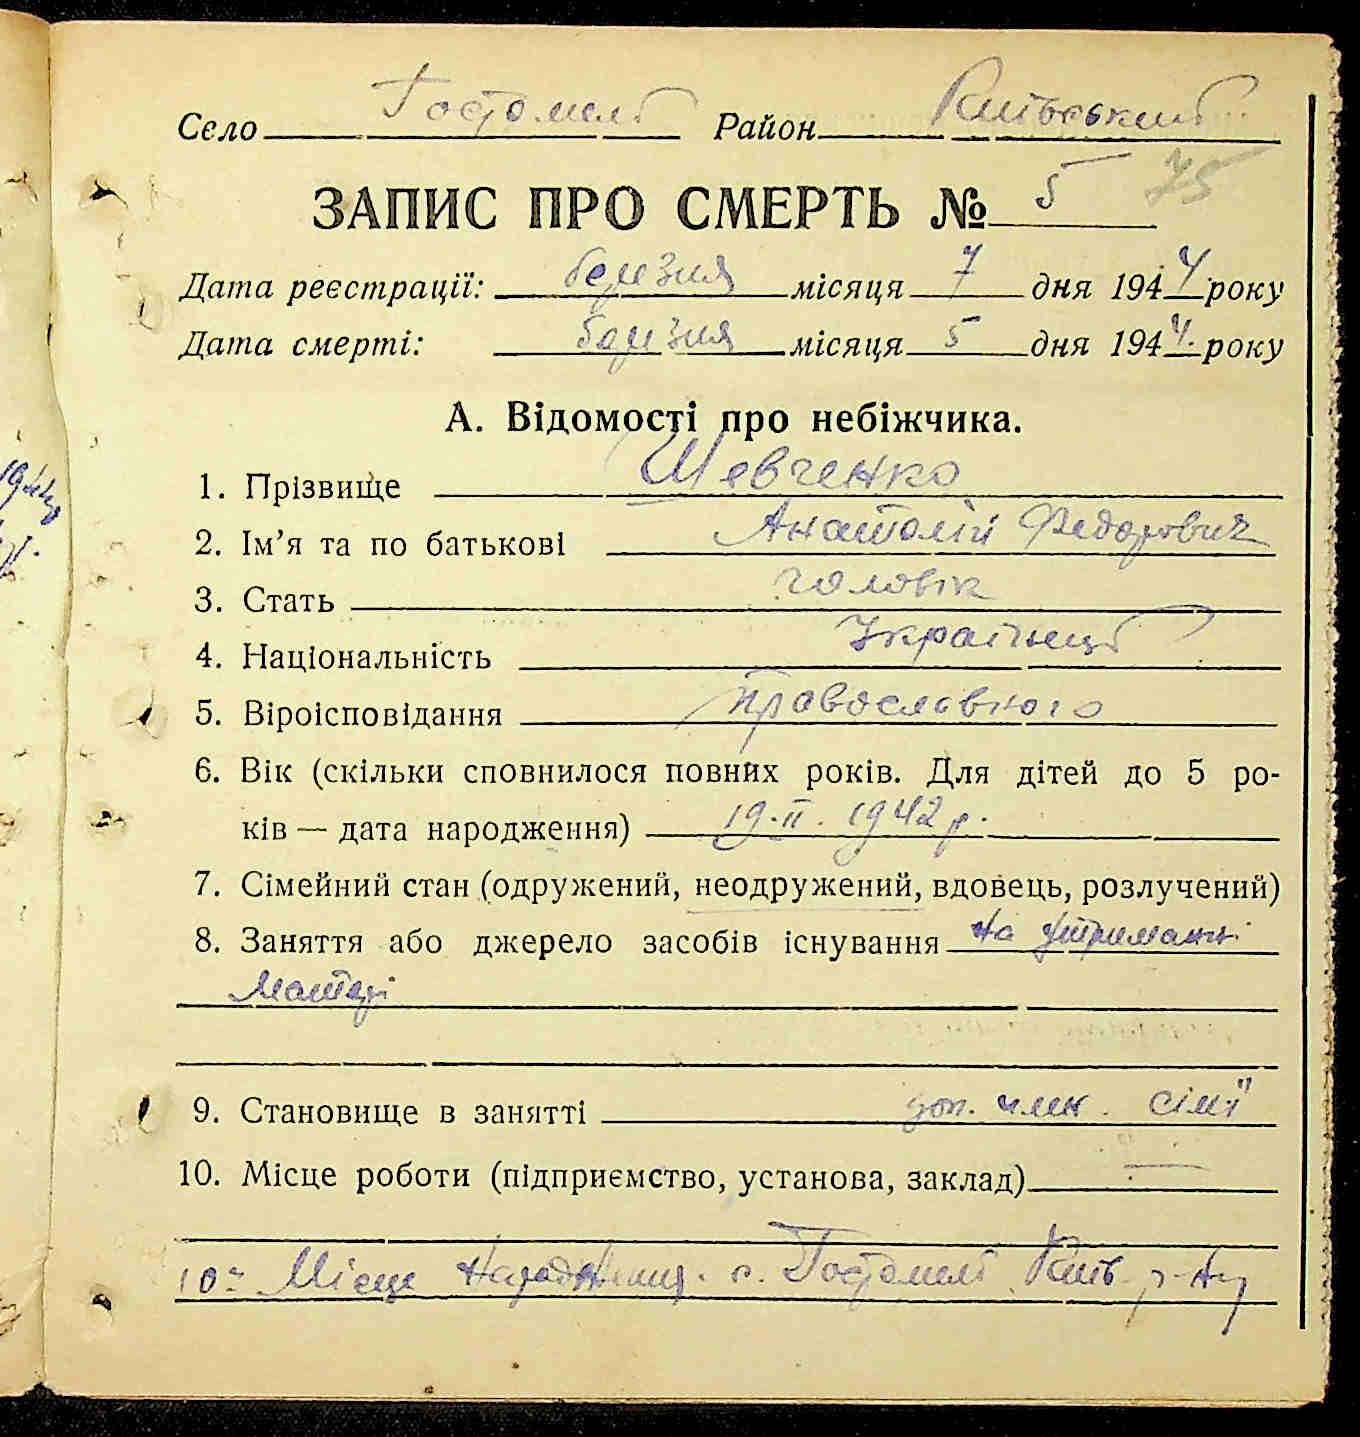 Село Гостомель Район Київський
ЗАПИС ПРО СМЕРТЬ № 5 75
Дата реєстрації: березня місяця 7 дня 1944 року
Дата смерті: березня місяця 5 дня 1944. року
А. Відомості про небіжчика.
1. Прізвище Шевченко
2. Ім’я та по батькові Анатолій Федорович
3. Стать чоловік
4. Національність Українець
5. Віроісповідання православного
6. Вік (скільки сповнилося повних років. Для дітей до 5 ро-
ків — дата народження) 19.II. 1942 р.
7. Сімейний стан (одружений, неодружений, вдовець, розлучений)
8. Заняття або джерело засобів існування на утриманні
Матері
9. Становище в занятті доп. член. сім'ї
10. Місце роботи (підприємство, установа, заклад) —
10а Місце народження. с. Гостомель Київ. р-ну